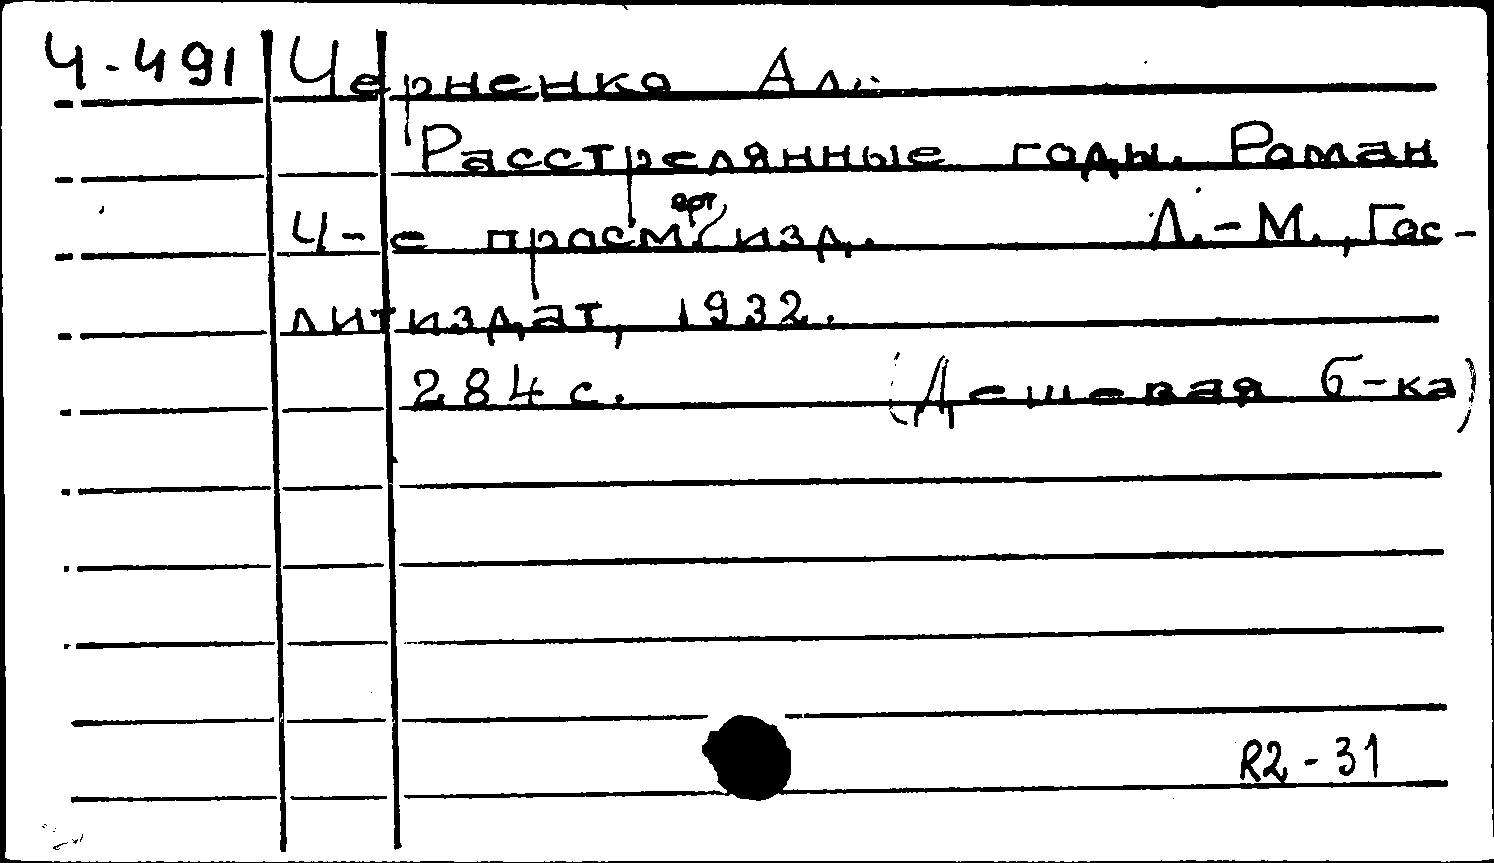 Ч-491 Черненко Ал..
Расстрелянные годы. Роман
4-е просм. изд. Л.-М., Гос-
литиздат, 1932.
284 с. (Дешевая б-ка)
R2-31